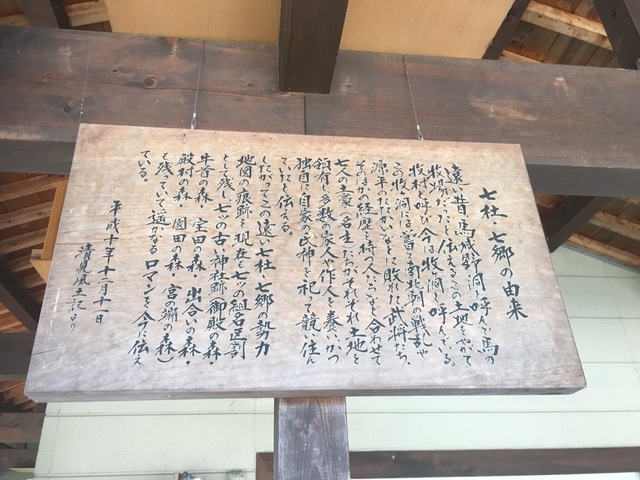 七社 七郷の由来
遠い昔、馬城野洞と呼んで馬の
牧場だったと伝えるこの土地はやがて
牧村と呼び今は牧洞と呼んでいる。
この牧ヶ洞には嘗て南北朝の戦乱や
源平のたたかいなどに敗れた武将たち、
そのほかの経歴を持つ人びとなど合わせて
七人の土豪（名主）たちがそれぞれ土地を
領有し多数の家人や作人を養いかつ
独自に自家の氏神を祀って競い住ん
でいたと伝える。
したがってこの遠い七社七郷の勢力
地図の痕跡は現在も七ッの組名区割
として残し七つの古神社跡（御殿の森・
牛首の森 宝田の森 出合いの森・
殿村の森 園田の森 宮の端の森）
を残していて遥かなるロマンを今に伝え
ている。
平成十年十二月十一日
清見風土記より